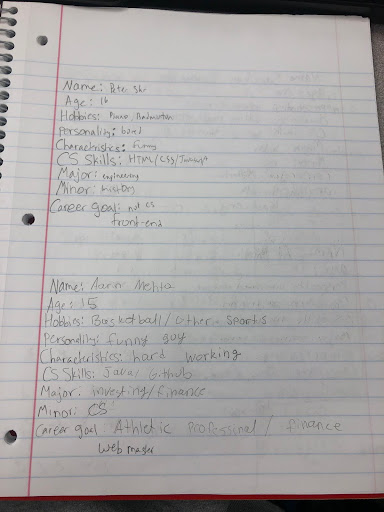 Name: Peter Shi
Age: 16
Hobbies: Piano Badminton
Personality: bored
Characteristics: funny
CS Skills: HTML/CSS/Javascript
Major: engineering
Minor: history
Career goal: not CS
front-end
Name: Aarin Mehta
Age: 15
Hobbies: Basketball/other sports
Personality: funny guy
Characteristics: hard working
CS Skills: Java/Github
Major: investing/finance
Minor: CS
Career goal: Athletic Professional/finance
web master